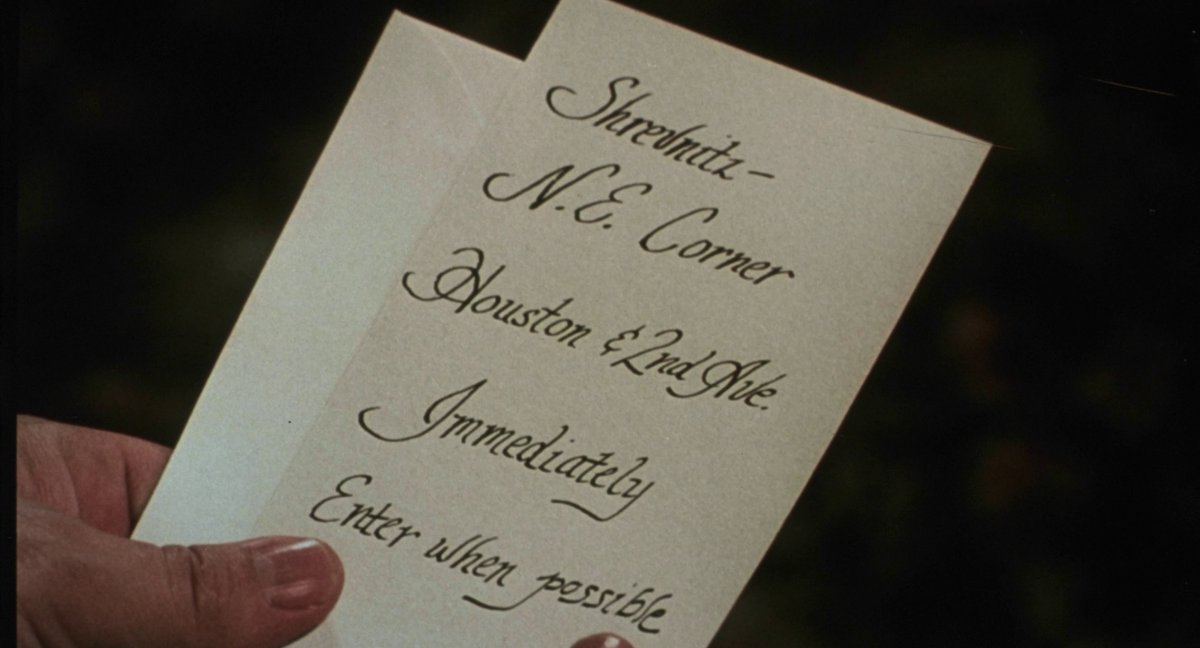 Shrevnitz-
N.E. Corner
Houston & 2nd Ave.
Immediately
Enter when possible